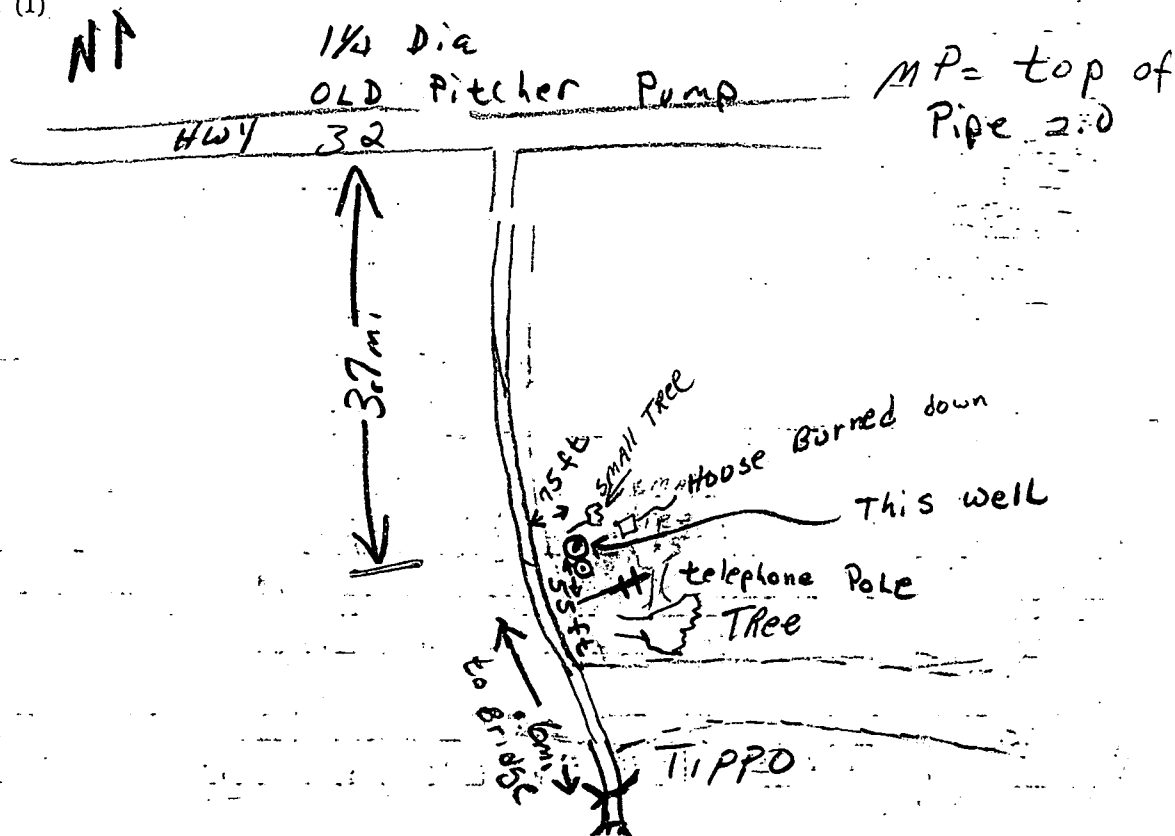 (1)
N
1 1/4 Dia
OLD Pitcher Pump
MP= top of
Pipe 2.0
HWY 32
3.7 mi
75 ft
SMALL TREE
House Burned down
This well
telephone Pole
55 ft
TRee
.6 mi
to Bridge
TIPPO